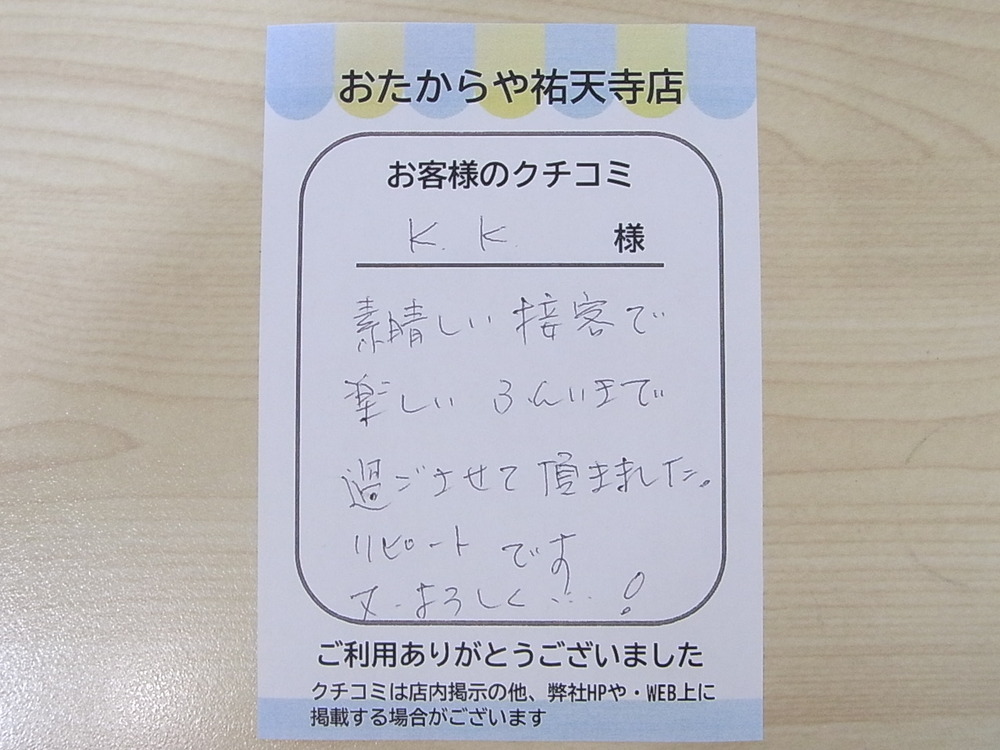 おたからや祐天寺店
お客様のクチコミ
K. K. 様
素晴しい 接客で
楽しい ふんいきで
過ごさせて 頂きました。
リピート です
又、よろしく…!
ご利用ありがとうございました
クチコミは店内掲示の他、弊社HPや・WEB上に
掲載する場合がございます